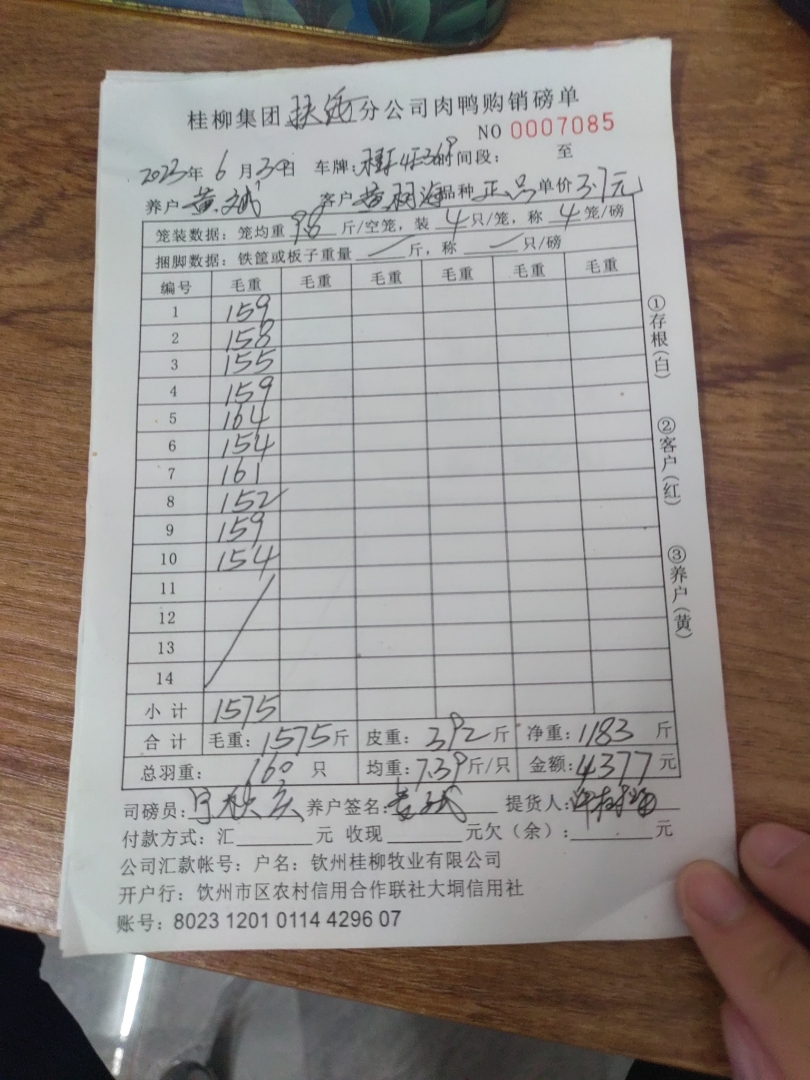 桂柳集团 分公司肉鸭购销磅单
NO 0007085
2023年 6 月 30日 车牌: 时间段: 至
养户 黄斌 客户 黄 海 品种 正品 单价 3.7元
笼装数据: 笼均重 9.8 斤/空笼, 装 4 只/笼, 称 4 笼/磅
捆脚数据: 铁筐或板子重量 / 斤, 称 / 只/磅
编号 毛重 毛重 毛重 毛重 毛重 毛重
1 159
2 158
3 155
4 159
5 164
6 154
7 161
8 152
9 159
10 154
11
12
13
14
小计 1575
合计 毛重: 1575斤 皮重: 392斤 净重: 1183 斤
总羽重: 160 只 均重: 7.39斤/只 金额: 4377元
司磅员: 养户签名: 黄斌 提货人:
付款方式: 汇 元 收现 元欠(余): 元
公司汇款帐号: 户名: 钦州桂柳牧业有限公司
开户行: 钦州市区农村信用合作联社大垌信用社
账号: 8023 1201 0114 4296 07
①存根(白)
②客户(红)
③养户(黄)